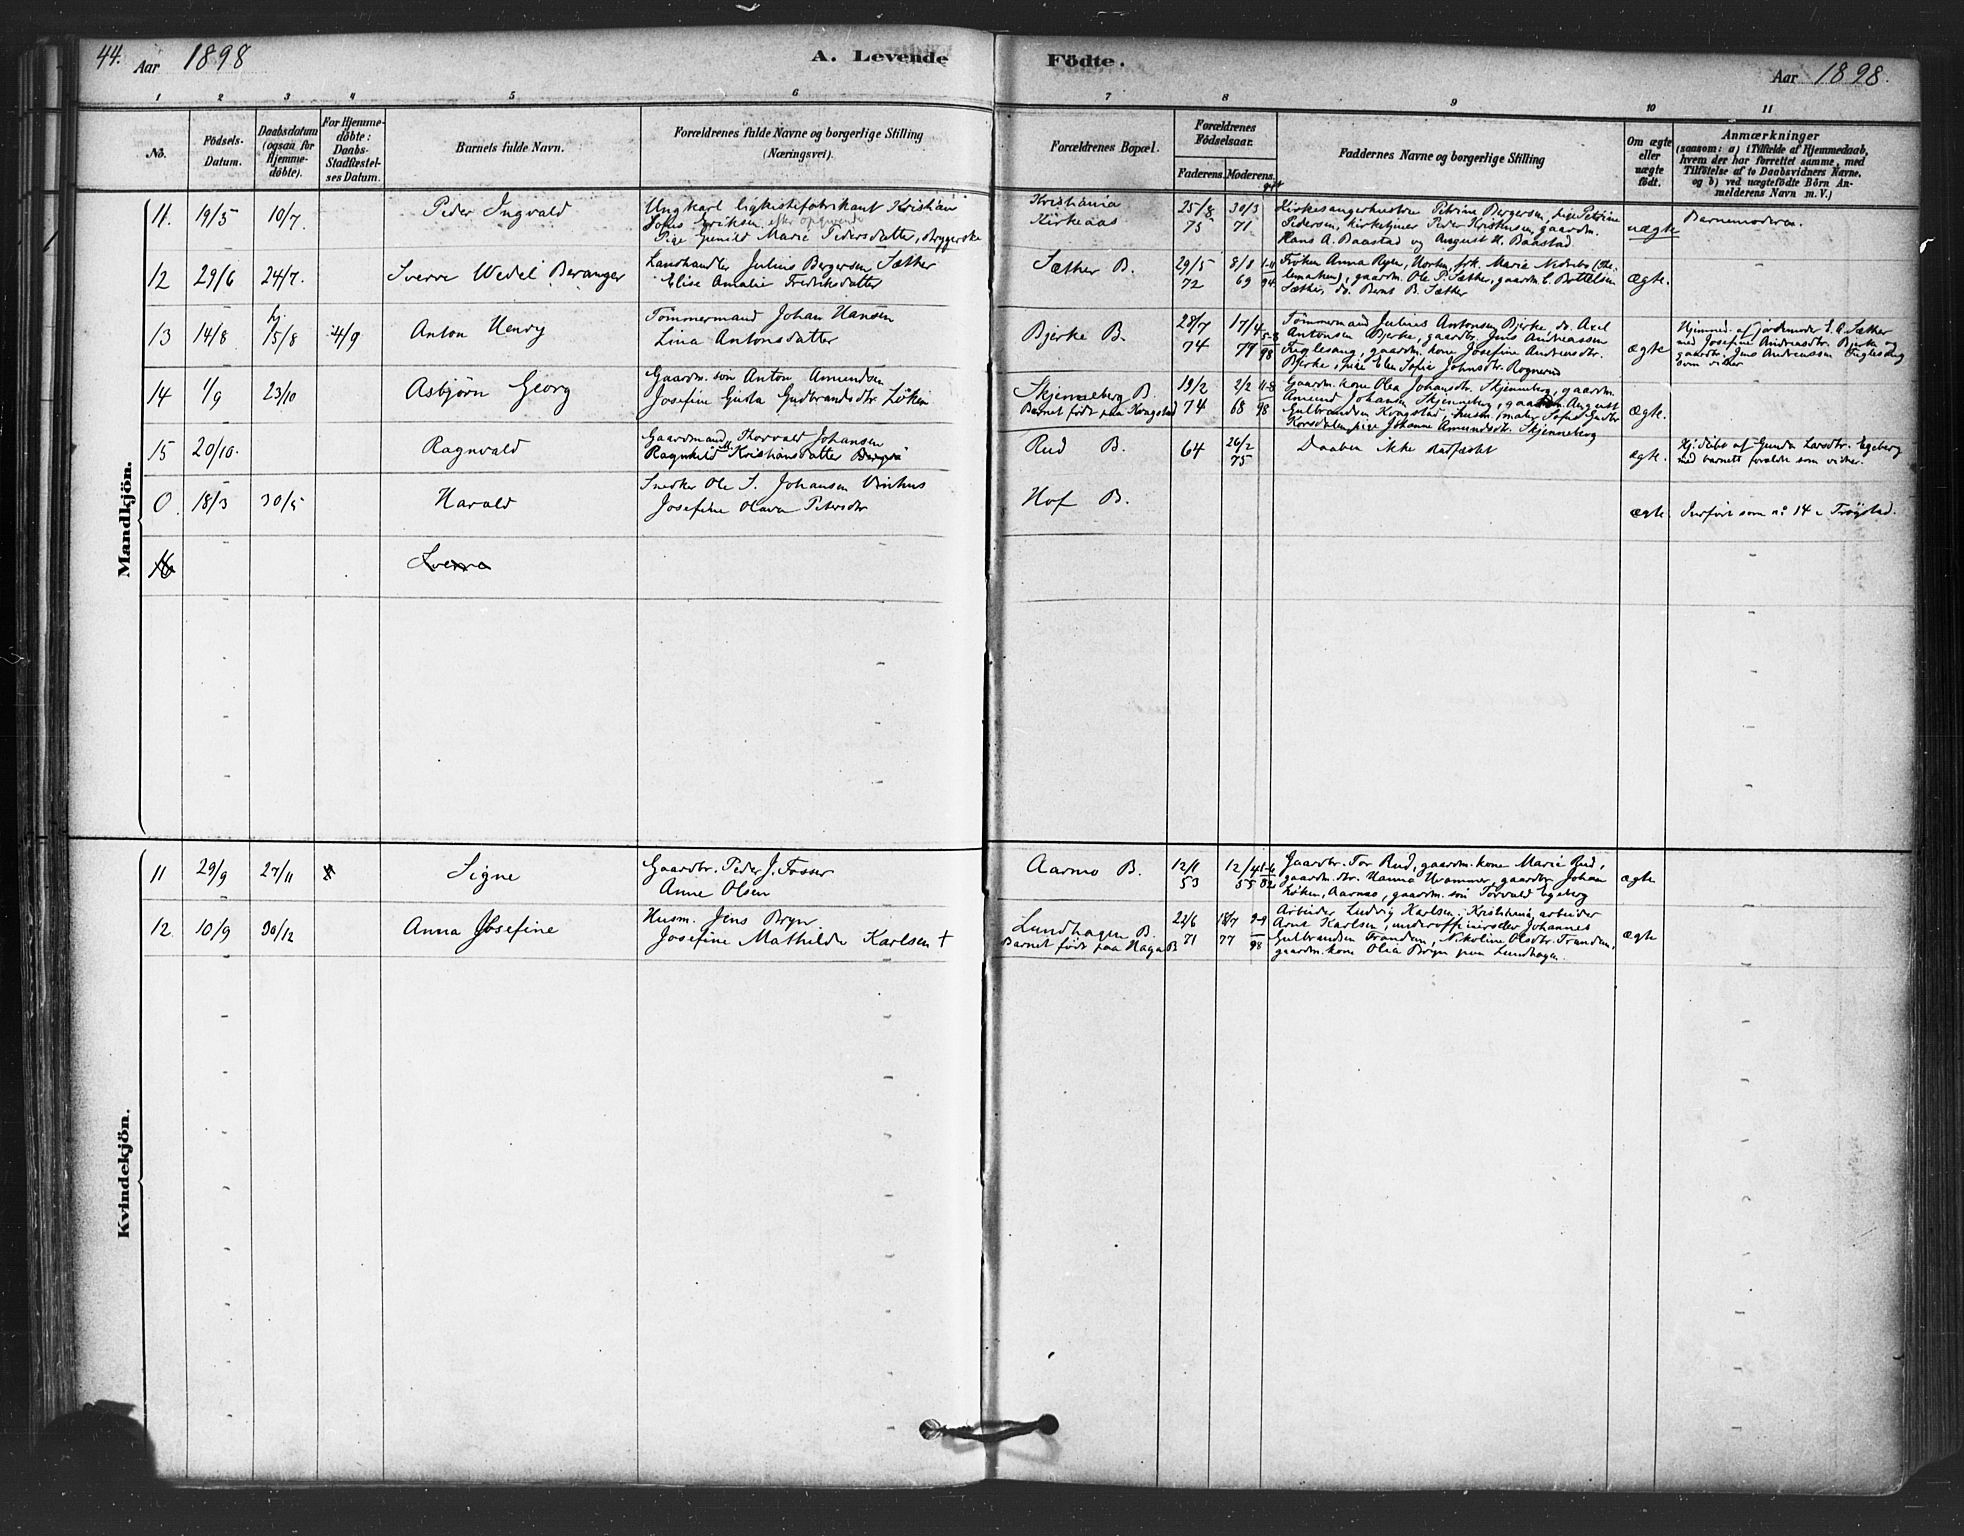 44. Aar 1898
A. Levende Födte.
Aar 1898.
1 2 3 4 5 6 7 8 9 10 11
No.
Födsels-
Datum.
Daabsdatum
(ogsaa for
Hjemme-
döbte).
For Hjemme-
döbte:
Daabs-
Stadfæstel-
ses Datum.
Barnets fulde Navn.
Forældrenes fulde Navne og borgerlige Stilling
(Næringsvei).
Forældrenes Bopæl.
Forældrenes
Födselsaar.
Faderens. Moderens.
gift
Faddernes Navne og borgerlige Stilling
Om ægte
eller
uægte
födt.
Anmærkninger
(saasom: a) i Tilfælde af Hjemmedaab,
hvem der har forrettet samme, med
Tilföielse af to Daabsvidners Navne,
og b) ved uægtefödte Börn An-
melderens Navn m. V.)
Mandkjön.
11. 19/5 10/7.
Peder Ingvald
Ungkarl ligkistefabrikant Kristian
Sofus Eriksen efter opgivende
Pige Gunild Marie Pedersdatter, Bryggerske
Kristiania
Kirkeaas
25/8 30/3
73 71
Kirkesangerhustru Petrine Bergersen, pige Petrine
Pedersen, kirketjener Peder Kristensen, gaardm.
Hans A. Baastad og August H. Baastad
uægte
Barnemoderen.
12 29/6 24/7.
Sverre Wedel Beranger
Landhandler Julius Bergersen Sæther
Elise Amalie Fredriksdatter
Sæther B.
29/5 8/8 1-11
72 69 94
Frøken Anna Ryen, Horten, frk. Marie
lemarken), gaardm. Ole P. Sæther, gaardm. C. Bottelsen
Sæther, do. Bernt B. Sæther
ægte.
13 14/8 hj 15/8 4/9
Anton Henry
Tömmermand Johan Hansen
Lina Antonsdatter
Bjerke B.
28/7 17/4 5-3
74 77 98
Tømmermand Julius Antonsen Bjerke, do. Axel
Antonsen Bjerke, gaardbr. Jens Andreassen
Fuglesang, gaardm. kone Josefine Andreasdtr.
Bjerke, pige Elen Sofie Johnsdtr. Rognerud
ægte
Hjemmed. af jordemoder S. A. Sæther
med Josefine Andreasdtr. Bjerke og
gaardbr. Jens Andreassen Fuglesang
som vidner
14 1/9 23/10
Asbjörn Georg
Gaardm. sön Anton Amundsen
Josefine Gusta Gudbrandsdtr. Löken
Skjenneberg B.
Barnet födt paa Kragstad
19/2 2/2 11-8
74 68 98
Gaardm. kone Olea Johansdtr. Skjenneberg, gaardm.
Amund Johansen Skjenneberg, gaardm. August
Gulbrandsen Kragstad, husm. maler Sofus Gudbr.
Korsdalen, pige Johanne Amundsdtr. Skjenneberg
ægte.
15 20/10.
Ragnvald
Gaardmand Thorvald Johansen
Ragnhild M. Kristiansdatter
Rud B.
64 26/2
75
Daaben ikke stadfæstet
ægte.
Hj. döbt af Gunda Larsdtr. Egeberg
med barnets forældre som vidner.
0 18/3 30/5
Harald
Snedker Ole S. Johansen
Josefine Olava Petersdtr
Hof B.
ægte
Indført som no 14 i Trøgstad.
16
Sverre
Kvindekjön.
11 29/9 27/11
Signe
Gaardbr. Peder J. Fosser
Anne Olsen
Aarmo B.
12/1 12/4 1-6
53 55 82
Gaardbr. Tor Rud, gaardm. kone Marie Rud,
gaardm. dtr. Hanna Hrammer, gaardbr. Johan
Löken, Aarmo, gaardm. sön Torvald Egeberg
ægte
12. 10/9 30/12
Anna Josefine
Husm. Jens Bryn
Josefine Mathilde Karlsen †
Lundhagen B.
Barnet födt paa Haga B
22/6 18/7 9-9
71 77 98
Arbeider Ludvig Karlsen, Kristiania, arbeider
Arnt Karlsen, underoffiserselev Johannes
Gulbrandsen Trandem, Nikoline Olsdtr. Trandem,
gaardm. kone Olea Bryn paa Lundhagen.
ægte